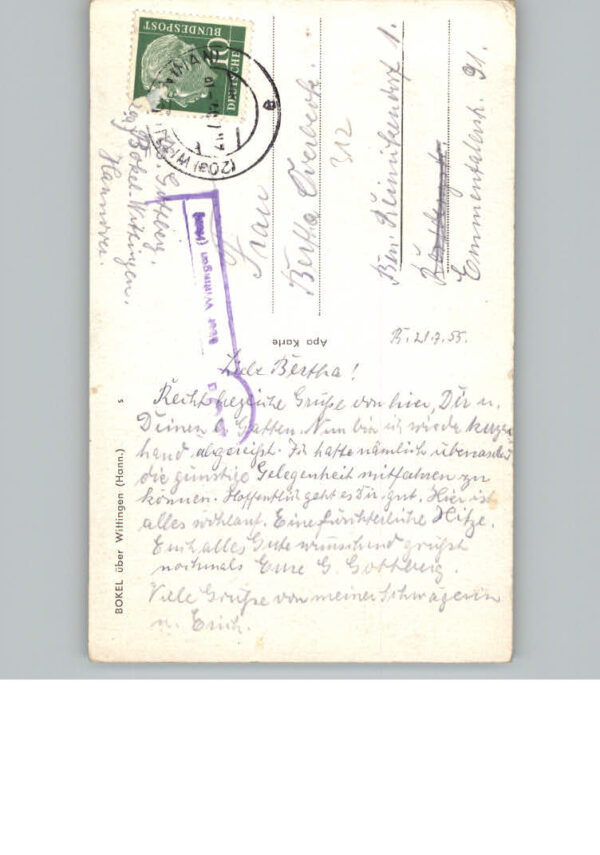 DEUTSCHE
BUNDESPOST
10
(20a) WITTINGEN
a
G. Gottberg,
Bokel-Wittingen,
Hannover.
Bokel
über Wittingen (Han)
Frau
Bertha Overbeck.
312
Bln. Reinickendorf 1.
Emmentalerstr. 91.
Apa Karte
BOKEL über Wittingen (Hann.)
s
B. 21.7.55.
Liebe Bertha!
Recht herzliche Grüße von hier, Dir u.
Deinen l. Gatten. Nun bin ich wieder kurzer
hand abgereist. Ich hatte nämlich überraschend
die günstige Gelegenheit mitfahren zu
können. Hoffentlich geht es Dir gut. Hier ist
alles wohlauf. Eine fürchterliche Hitze.
Euch alles Gute wünschend grüßt
nochmals Eure G. Gottberg.
Viele Grüße von meiner Schwägerin
u. Erich.